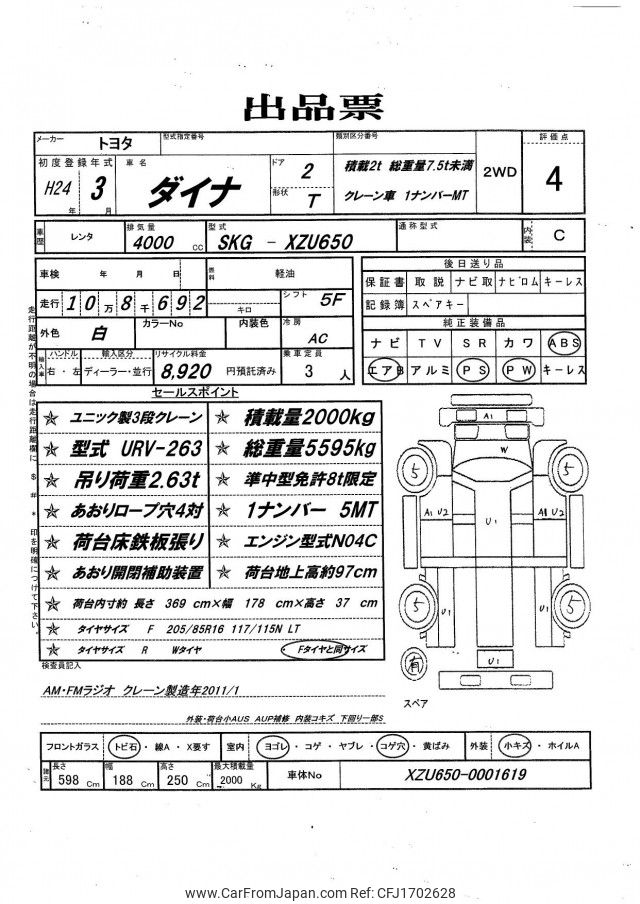 出品票
メーカー トヨタ 型式指定番号 類別区分番号 評価点
初度登録年式 車名 ドア 2 積載2t 総重量7.5t未満 2WD 4
H24年 3月 ダイナ 形状 T クレーン車 1ナンバーMT
車歴 レンタ 排気量 4000 cc 型式 SKG - XZU650 通称型式 内装 C
車検 年 月 日 燃料 軽油
走行 10万8千692 キロ シフト 5F
外色 白 カラーNo 内装色 冷房 AC
輸入車 ハンドル 右・左 輸入区分 ディーラー・並行 リサイクル料金 8,920 円預託済み 乗車定員 3 人
後日送り品
保証書 取説 ナビ取 ナビロム キーレス
記録簿 スペアキー
純正装備品
ナビ TV SR カワ ABS
エアB アルミ PS PW キーレス
走行距離が不明の場合は走行距離欄に $ # * 印を明確につけて下さい。
セールスポイント
☆ ユニック製3段クレーン ☆ 積載量2000kg
☆ 型式 URV-263 ☆ 総重量5595kg
☆ 吊り荷重2.63t ☆ 準中型免許8t限定
☆ あおりロープ穴4対 ☆ 1ナンバー 5MT
☆ 荷台床鉄板張り ☆ エンジン型式N04C
☆ あおり開閉補助装置 ☆ 荷台地上高約97cm
☆ 荷台内寸約 長さ 369 cm×幅 178 cm×高さ 37 cm
☆ タイヤサイズ F 205/85R16 117/115N LT
☆ タイヤサイズ R Wタイヤ Fタイヤと同サイズ
A1
W
5 5
A1 U2 U1 A1 U2
5 5
U1 U1
有 U1
スペア
検査員記入
AM・FMラジオ クレーン製造年2011/1
外装・荷台小AUS AUP補修 内装コキズ 下回り一部S
フロントガラス トビ石・線A・X要す 室内 ヨゴレ・コゲ・ヤブレ・コゲ穴・黄ばみ 外装 小キズ・ホイルA
諸元 長さ 598 Cm 幅 188 Cm 高さ 250 Cm 最大積載量 2000 Kg 車体No XZU650-0001619
www.CarFromJapan.com Ref: CFJ1702628